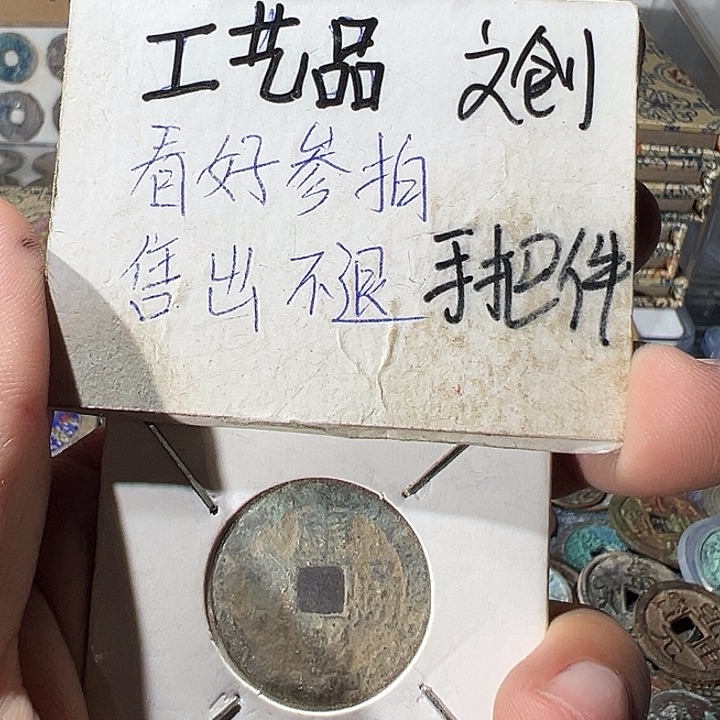 工艺品 文创
看好参拍
售出不退 手把件